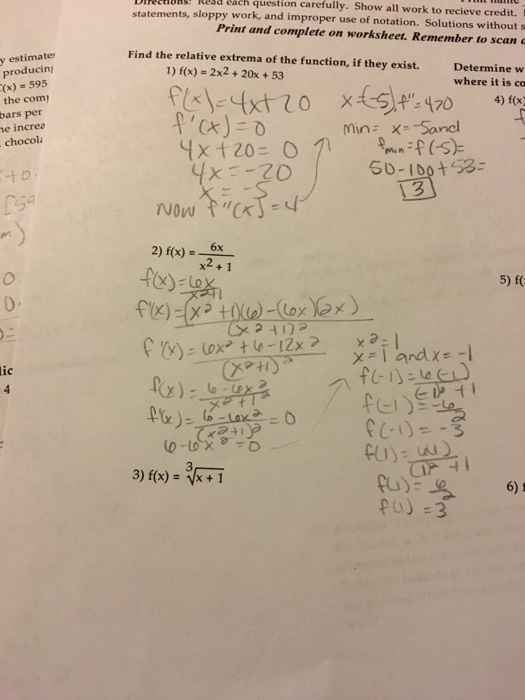 question carefully. Show all work to recieve credit.
statements, sloppy work, and improper use of notation. Solutions without
Print and complete on worksheet. Remember to scan
y estimate
producing
(x) = 595
the com
bars per
ne increa
chocol
Find the relative extrema of the function, if they exist.
1) f(x) = 2x2 + 20x + 53
f(x)=4x+20
f'(x)=0
4x+20=0
4x=-20
x=-5
NOW f"(x)=4
x=-5, f"=470
min= x=-5 and
fmin=f(-5)=
50-100+53=
3
Determine w
where it is co
4) f(x)
2) f(x) = 6x
x2 + 1
f(x)=6x
x2+1
f'(x)=(x2+1)(6)-(6x)(2x)
(x2+1)2
f'(x)=6x2+6-12x2
(x2+1)2
f(x)=6-6x2
f'(x)=6-6x2=0
(x2+1)2
6-6x2=0
x2=1
x=1 and x=-1
f(-1)=6(-1)
(-1)2+1
f(-1)=-6
2
f(-1)=-3
f(1)=
(1)2+1
f(1)=6
2
f(1)=3
3) f(x) = 3√x + 1
5) f(
6)
lic
4